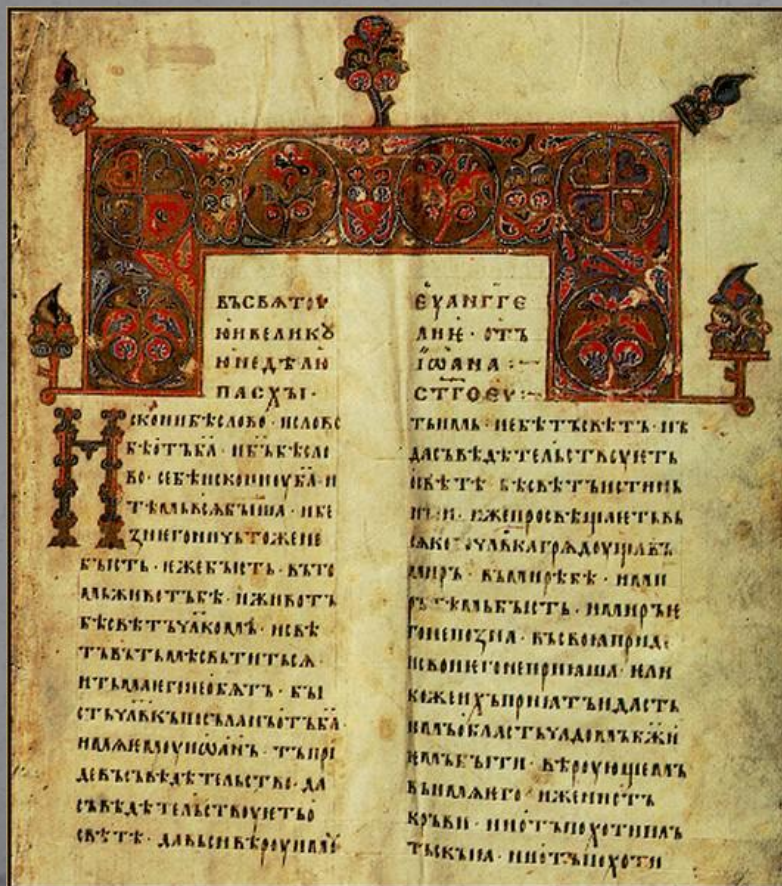 ВЪСВѦТОУ
ЮИВЕЛИКꙊ
ЮНЕДѢЛЮ
ПАСХЪІ·
ИСКОНИБѢСЛОВО·ИСЛОВО
БѢОТЪБА҃·ИБ҃ЪБѢСЛО
ВО·СЕБѢИСКОНИОУБА҃·И
ТѢМЬВСѦБЪІША·ИБЕ
ЗНЕГОНИЧЬТОЖЕНЕ
БЪІСТЬ·ИЖЕБЪІСТЬ·ВЪТО
МЬЖИВОТЪБѢ·ИЖИВОТЪ
БѢСВѢТЪЧЛ҃КОМЪ·ИСВѢ
ТЪВЪТЬМѢСВЬТИТЬСѦ·
ИТЬМАЕГОНЕОБѦТЪ·БЪІ
СТЬЧЛ҃ВКЪПОСЪЛАНЪОТЪБА҃·
ИМѦЕМОУИѠАНЪ·ТЪПРІ
ДЕВЪСЪВѢДѢТЕЛЬСТВО·ДА
СЪВѢДѢТЕЛЬСТВОУЕТЬО
СВѢТѢ·ДАВЬСИВѢРОУИМꙊ
ЕУАНГГЕ
ЛИѤ·ОТЪ
ІѠАНА:~
СТ҃ГОЕУ:~
ТЬИМЬ·НЕБѢТЪСВѢТЪ·НЪ
ДАСЪВѢДѢТЕЛЬСТВОУѤТЬ
ОСВѢТѢ·БѢСВѢТЪИСТИНЬ
НЪИ·ИЖЕПРОСВѢЩАЕТЬВЬ
СѦКОГОЧЛ҃ВКАГРѦДОУЩАВЪ
МИРЪ·ВЪМИРѢБѢ·ИМИ
РЪТѢМЬБЪІСТЬ·ИМИРЪѤ
ГОНЕПОЗНА·ВЪСВОꙖПРИДЕ
ИСВОИѤГОНЕПРИꙖША·ѤЛИ
КОЖЕИХЪПРИꙖТЪИДАСТЬ
ИМЪОБЛАСТЬЧАДОМЪБЖ҃И
ЕМЪБЪІТИ·ВѢРОУЮЩЕМЪ
ВЪИМѦѤГО·ИЖЕНИОТЪ
КРЪВИ·НИОТЪПОХОТИПЛЪ
ТЬСКЪІꙖ·НИОТЪПОХОТИ